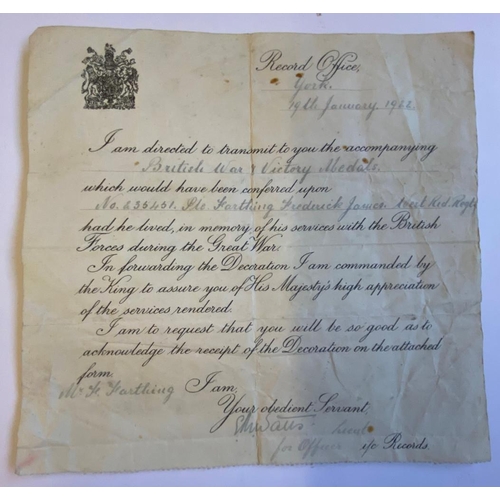 Record Office,
York.
19th January, 1922
I am directed to transmit to you the accompanying
British War & Victory Medals
which would have been conferred upon
No. 235451. Pte Farthing Frederick James West Rid. Regt
had he lived, in memory of his services with the British
Forces during the Great War.
In forwarding the Decoration I am commanded by
the King to assure you of His Majesty's high appreciation
of the services rendered.
I am to request that you will be so good as to
acknowledge the receipt of the Decoration on the attached
form.
Mr F. Farthing I am,
Your obedient Servant,
Lieut
for Officer i/c Records.